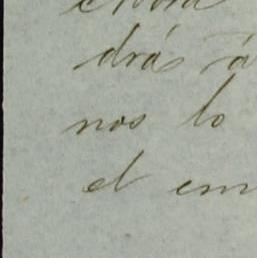 drás á
nos lo
el em